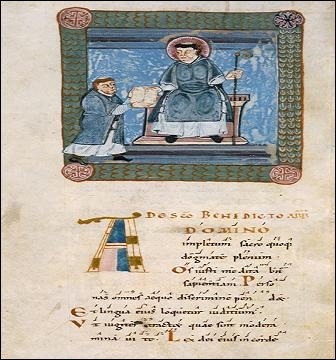 DE SCO BENEDICTO ABB
A DOMINO
impletum sacro quoq
dogmate plenum
Os iusti
sapientiam Perso
nas omnes aequo discrimine pen
Et lingua eius loquetur iudicium
Ut iugiter quae sunt modera
mina Lex dei eius in corde